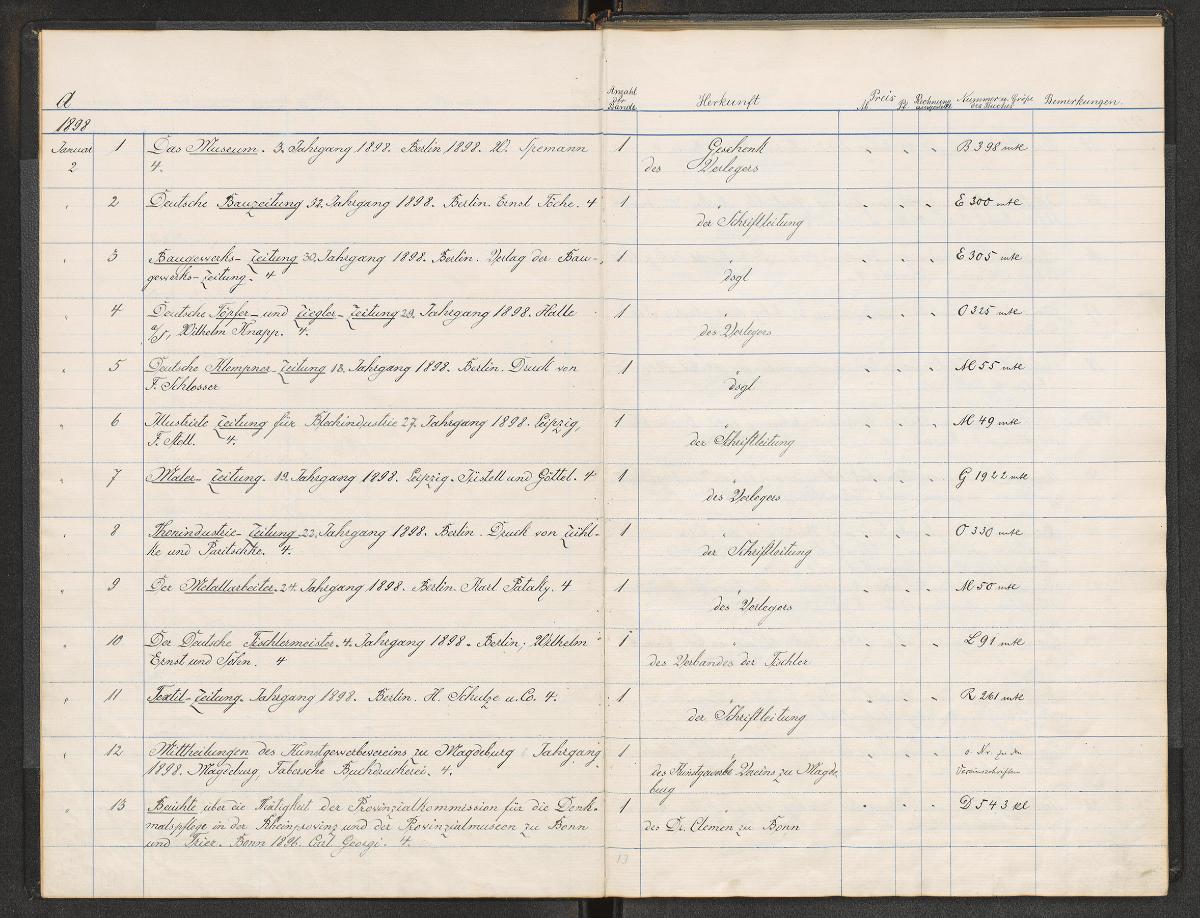 a
Anzahl der Bände Herkunft Preis M Pf Rechnung Nummer u. Größe des Buches Bemerkungen.
1898
Januar 1 Das Museum. 3. Jahrgang 1898. Berlin 1898. W. Spemann 1 Geschenk B 398 mtl
2 4. des Verlegers
" 2 Deutsche Bauzeitung 32. Jahrgang 1898. Berlin. Ernst Toche. 4 1 " E 300 mtl
der Schriftleitung
" 3 Baugewerks-Zeitung 30. Jahrgang 1898. Berlin. Verlag der Bau- 1 " E 305 mtl
gewerks-Zeitung. 4 dsgl
" 4 Deutsche Töpfer- und Ziegler-Zeitung 29. Jahrgang 1898. Halle 1 " O 325 mtl
a/S, Wilhelm Knapp. 4. des Verlegers
" 5 Deutsche Klempner-Zeitung 18. Jahrgang 1898. Berlin. Druck von 1 " M 55 mtl
F. Schlosser dsgl
" 6 Illustrirte Zeitung für Blechindustrie 27. Jahrgang 1898. Leipzig, 1 " M 49 mtl
F. Stoll. 4. der Schriftleitung
" 7 Maler-Zeitung. 19. Jahrgang 1898. Leipzig. Jüstell und Göttel. 4 1 " G 1922 mtl
des Verlegers
" 8 Thonindustrie-Zeitung 22. Jahrgang 1898. Berlin. Druck von Zühl- 1 " O 330 mtl
ke und Paritschke. 4. der Schriftleitung
" 9 Der Metallarbeiter. 24. Jahrgang 1898. Berlin. Karl Pataky. 4 1 " M 50 mtl
des Verlegers
" 10 Der Deutsche Tischlermeister. 4. Jahrgang 1898. Berlin, Wilhelm 1 " L 91 mtl
Ernst und Sohn. 4 des Verbandes der Tischler
" 11 Textil-Zeitung. Jahrgang 1898. Berlin. H. Schulze u. Co. 4. 1 " R 261 mtl
der Schriftleitung
" 12 Mittheilungen des Kunstgewerbevereins zu Magdeburg Jahrgang 1 " o. Nr. zu den
1898. Magdeburg, Fabersche Buchdruckerei. 4. des Kunstgewerbe Vereins zu Magde- Vereinsschriften
burg
" 13 Berichte über die Thätigkeit der Provinzialkommission für die Denk- 1 " D 543 kl
malspflege in der Rheinprovinz und der Provinzialmuseen zu Bonn des Dr. Clemen zu Bonn
und Trier. Bonn 1896. Carl Georgi. 4.
13